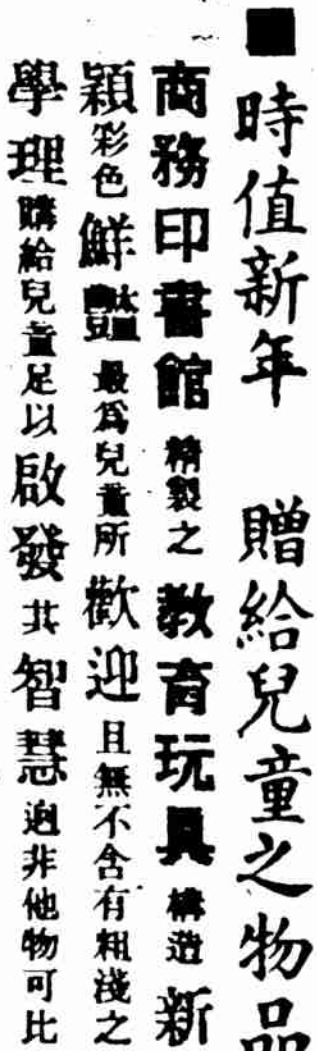 ■時值新年 贈給兒童之物品
商務印書館精製之教育玩具構造新
穎彩色鮮豔最爲兒童所歡迎且無不含有粗淺之
學理購給兒童足以啟發其智慧迥非他物可比